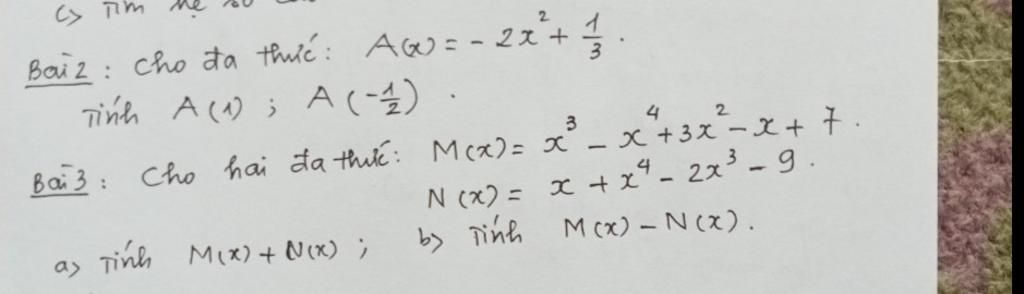 c) Tìm hệ số
Bài 2 : Cho đa thức: A(x) = - 2x² + 1/3 .
Tính A(1) ; A(-1/2) .
Bài 3 : Cho hai đa thức: M(x) = x³ - x⁴ + 3x² - x + 7 .
N(x) = x + x⁴ - 2x³ - 9 .
a) Tính M(x) + N(x) ; b) Tính M(x) - N(x) .